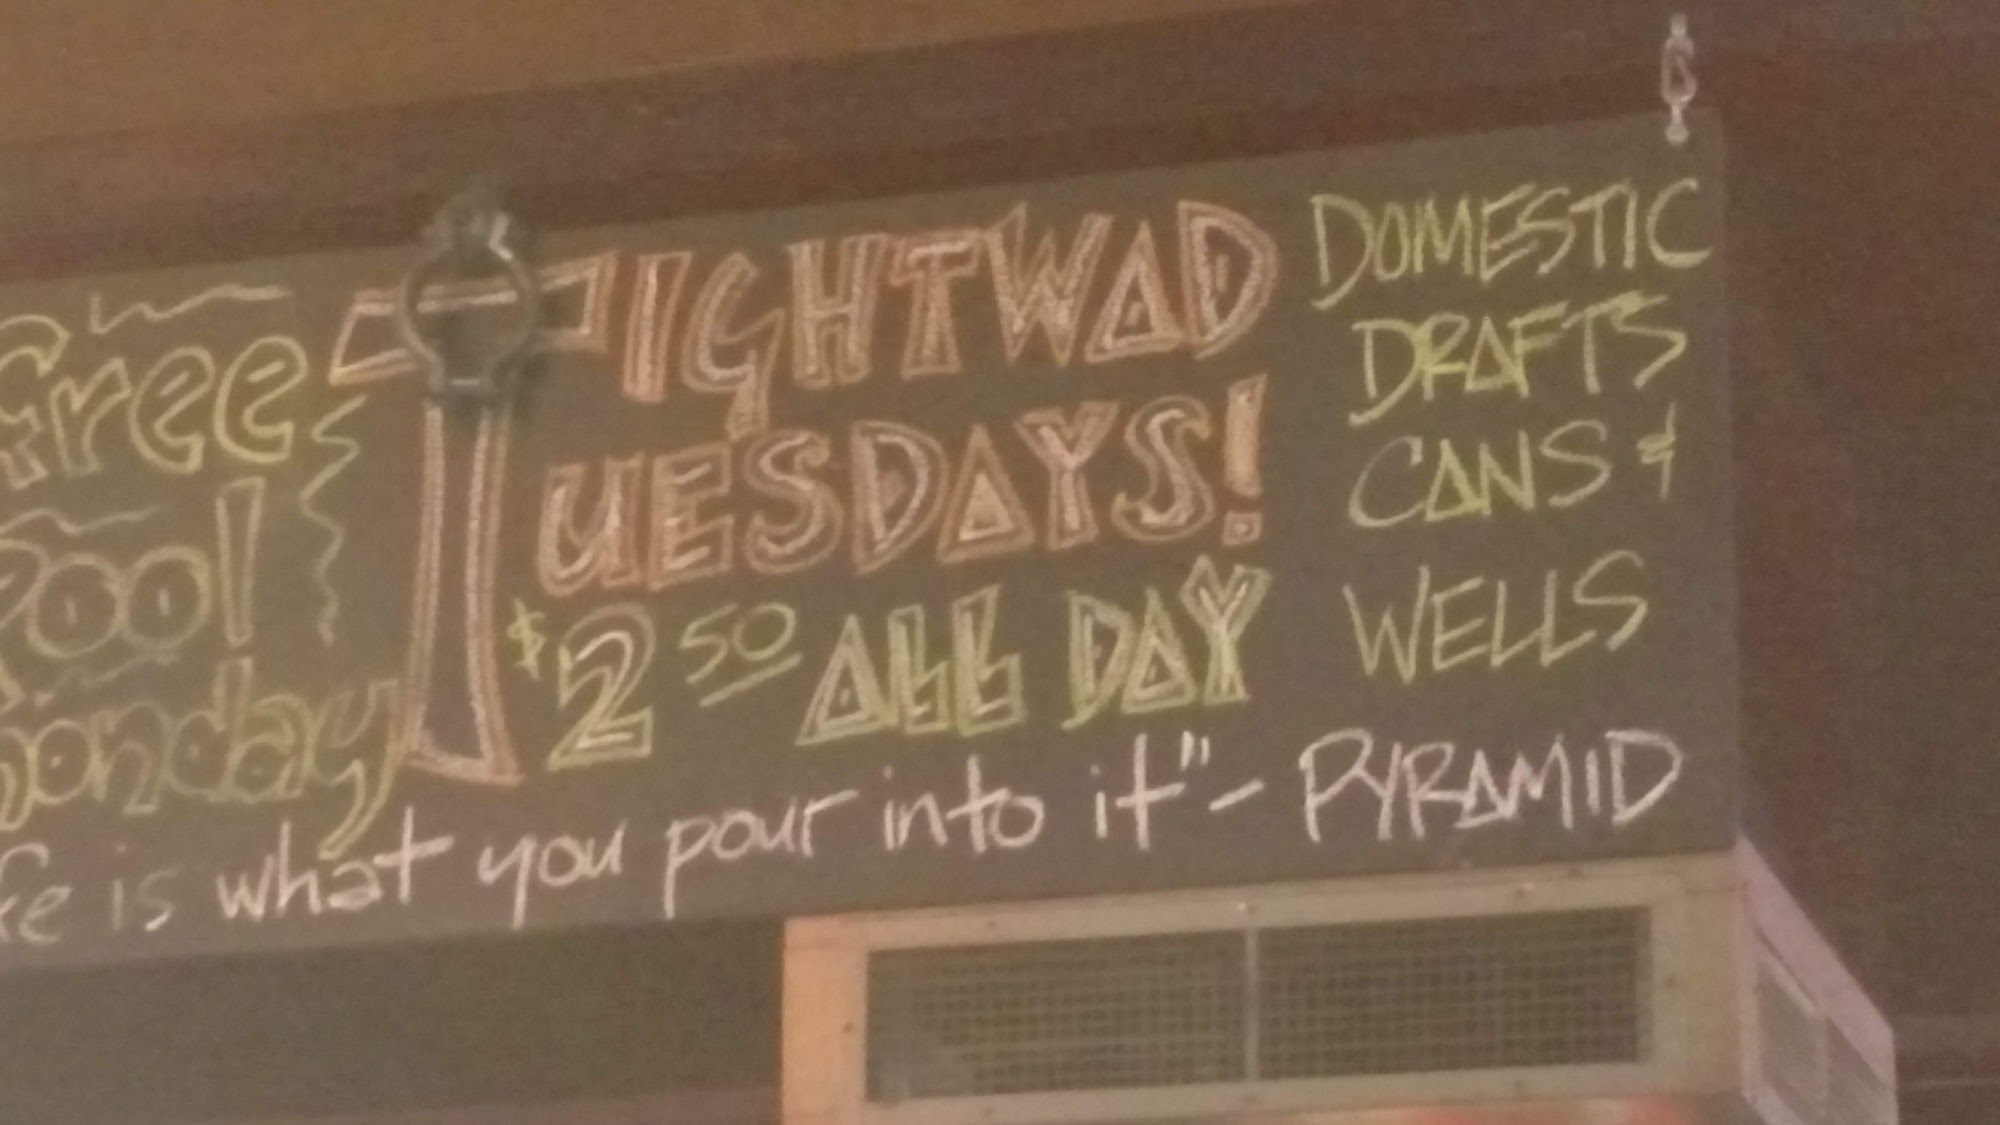 free
pool
monday
TIGHTWAD
TUESDAYS!
$2.50 ALL DAY
DOMESTIC
DRAFTS
CANS &
WELLS
is what you pour into it" - PYRAMID